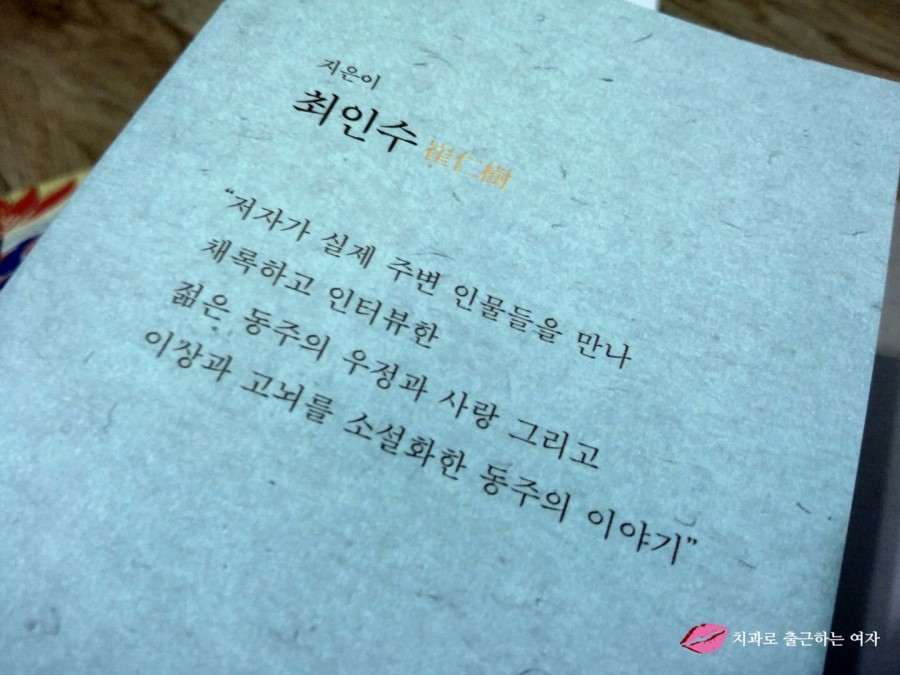 지은이
최인수 崔仁樹
“저자가 실제 주변 인물들을 만나
채록하고 인터뷰한
젊은 동주의 우정과 사랑 그리고
이상과 고뇌를 소설화한 동주의 이야기”
치과로 출근하는 여자